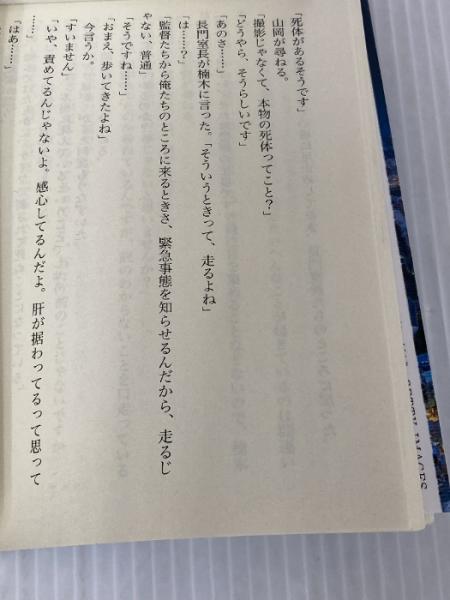 「死体があるそうです」
山岡が尋ねる。
「撮影じゃなくて、本物の死体ってこと？」
「どうやら、そうらしいです」
「あのさ……」
長門室長が楠木に言った。「そういうときって、走るよね」
「は……？」
「監督たちから俺たちのところに来るときさ、緊急事態を知らせるんだから、走るじ
ゃない、普通」
「そうですね……」
「おまえ、歩いてきたよね」
今言うか。
「すいません」
「いや、責めてるんじゃないよ。感心してるんだよ。肝が据わってるって思って
……」
「はあ……」
IMAGES